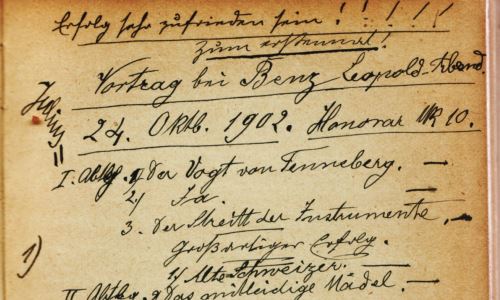 Erfolg sehr zufrieden sein! ! ! ! !
zum erstenmal!
Vortrag bei Benz Leopold-Abend.
24. Oktb. 1902. Honorar Mk 10.
I. Abtlg. 1) Der Vogt von Tenneberg. —
2) Ja.
3. Der Streitt der Instrumente. —
Großartiger Erfolg.
1)
1) Alte Schweizer. —
II Abtlg. 2 Das mitleidige Mädel. —